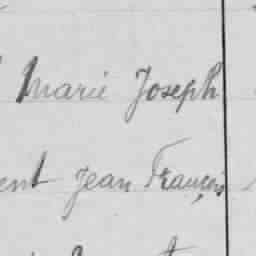 Marie Joseph
ent Jean François